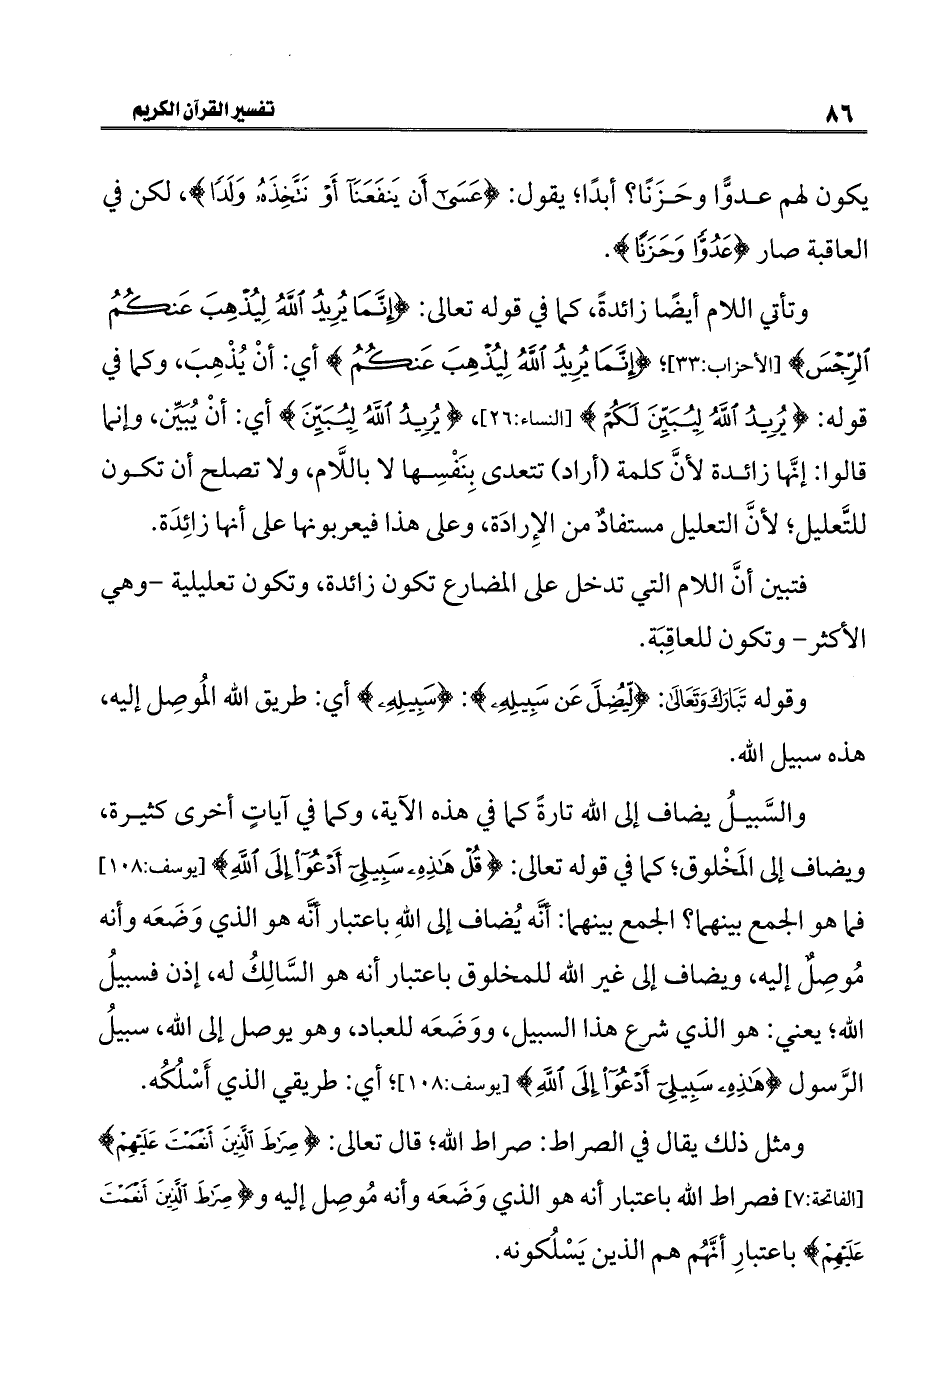 ٨٦ تفسير القرآن الكريم
يكون لهم عـدوًّا وحَـزَنًا؟ أبدًا؛ يقول: ﴿عَسَىٰٓ أَن يَنفَعَنَآ أَوۡ نَتَّخِذَهُۥ وَلَدٗا﴾، لكن في
العاقبة صار ﴿عَدُوّٗا وَحَزَنًا﴾.
وتأتي اللام أيضًا زائدةً، كما في قوله تعالى: ﴿إِنَّمَا يُرِيدُ ٱللَّهُ لِيُذۡهِبَ عَنكُمُ
ٱلرِّجۡسَ﴾ [الأحزاب:٣٣]؛ ﴿إِنَّمَا يُرِيدُ ٱللَّهُ لِيُذۡهِبَ عَنكُمُ﴾ أي: أنْ يُذْهِبَ، وكما في
قوله: ﴿يُرِيدُ ٱللَّهُ لِيُبَيِّنَ لَكُمۡ﴾ [النساء:٢٦]، ﴿يُرِيدُ ٱللَّهُ لِيُبَيِّنَ﴾ أي: أنْ يُبَيِّن، وإنما
قالوا: إنَّها زائـدة لأنَّ كلمة (أراد) تتعدى بِنَفْسِـها لا باللَّام، ولا تصلح أن تكـون
للتَّعليل؛ لأنَّ التعليل مستفادٌ من الإِرادَة، وعلى هذا فيعربونها على أنها زائِدَة.
فتبين أنَّ اللام التي تدخل على المضارع تكون زائدة، وتكون تعليلية -وهي
الأكثر- وتكون للعاقِبَة.
وقوله تَبَارَكَ وَتَعَالَىٰ: ﴿لِّيُضِلَّ عَن سَبِيلِهِۦ﴾: ﴿سَبِيلِهِۦ﴾ أي: طريق الله المُوصِل إليه،
هذه سبيل الله.
والسَّبيـلُ يضاف إلى الله تارةً كما في هذه الآية، وكما في آياتٍ أخرى كثيـرة،
ويضاف إلى المَخْلوق؛ كما في قوله تعالى: ﴿قُلۡ هَٰذِهِۦ سَبِيلِيٓ أَدۡعُوٓاْ إِلَى ٱللَّهِ﴾ [يوسف:١٠٨]
فما هو الجمع بينهما؟ الجمع بينهما: أنَّه يُضاف إلى اللهِ باعتبار أنَّه هو الذي وَضَعَه وأنه
مُوصِلٌ إليه، ويضاف إلى غير الله للمخلوق باعتبار أنه هو السَّالِكُ له، إذن فسبيلُ
الله؛ يعني: هو الذي شرع هذا السبيل، ووَضَعَه للعباد، وهو يوصل إلى الله، سبيلُ
الرَّسول ﴿هَٰذِهِۦ سَبِيلِيٓ أَدۡعُوٓاْ إِلَى ٱللَّهِ﴾ [يوسف:١٠٨]؛ أي: طريقي الذي أَسْلُكُه.
ومثل ذلك يقال في الصراط: صراط الله؛ قال تعالى: ﴿صِرَٰطَ ٱلَّذِينَ أَنۡعَمۡتَ عَلَيۡهِمۡ﴾
[الفاتحة:٧] فصراط الله باعتبار أنه هو الذي وَضَعَه وأنه مُوصِل إليه و﴿صِرَٰطَ ٱلَّذِينَ أَنۡعَمۡتَ
عَلَيۡهِمۡ﴾ باعتبارِ أنَّهُم هم الذين يَسْلُكونه.